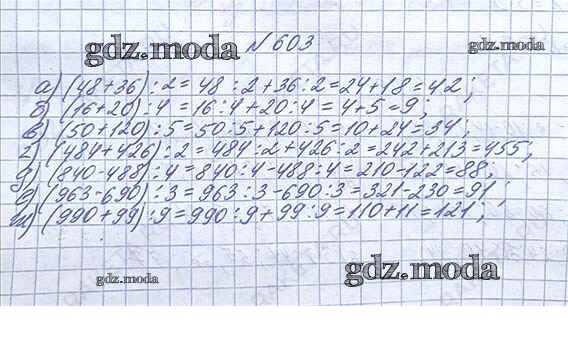 gdz.moda
№ 603
gdz.moda
а) (48+36):2=48:2+36:2=24+18=42;
б) (16+20):4=16:4+20:4=4+5=9;
в) (50+120):5=50:5+120:5=10+24=34;
г) (484+426):2=484:2+426:2=242+213=455;
д) (840-488):4=840:4-488:4=210-122=88;
е) (963-690):3=963:3-690:3=321-230=91;
ж) (990+99):9=990:9+99:9=110+11=121;
gdz.moda
gdz.moda